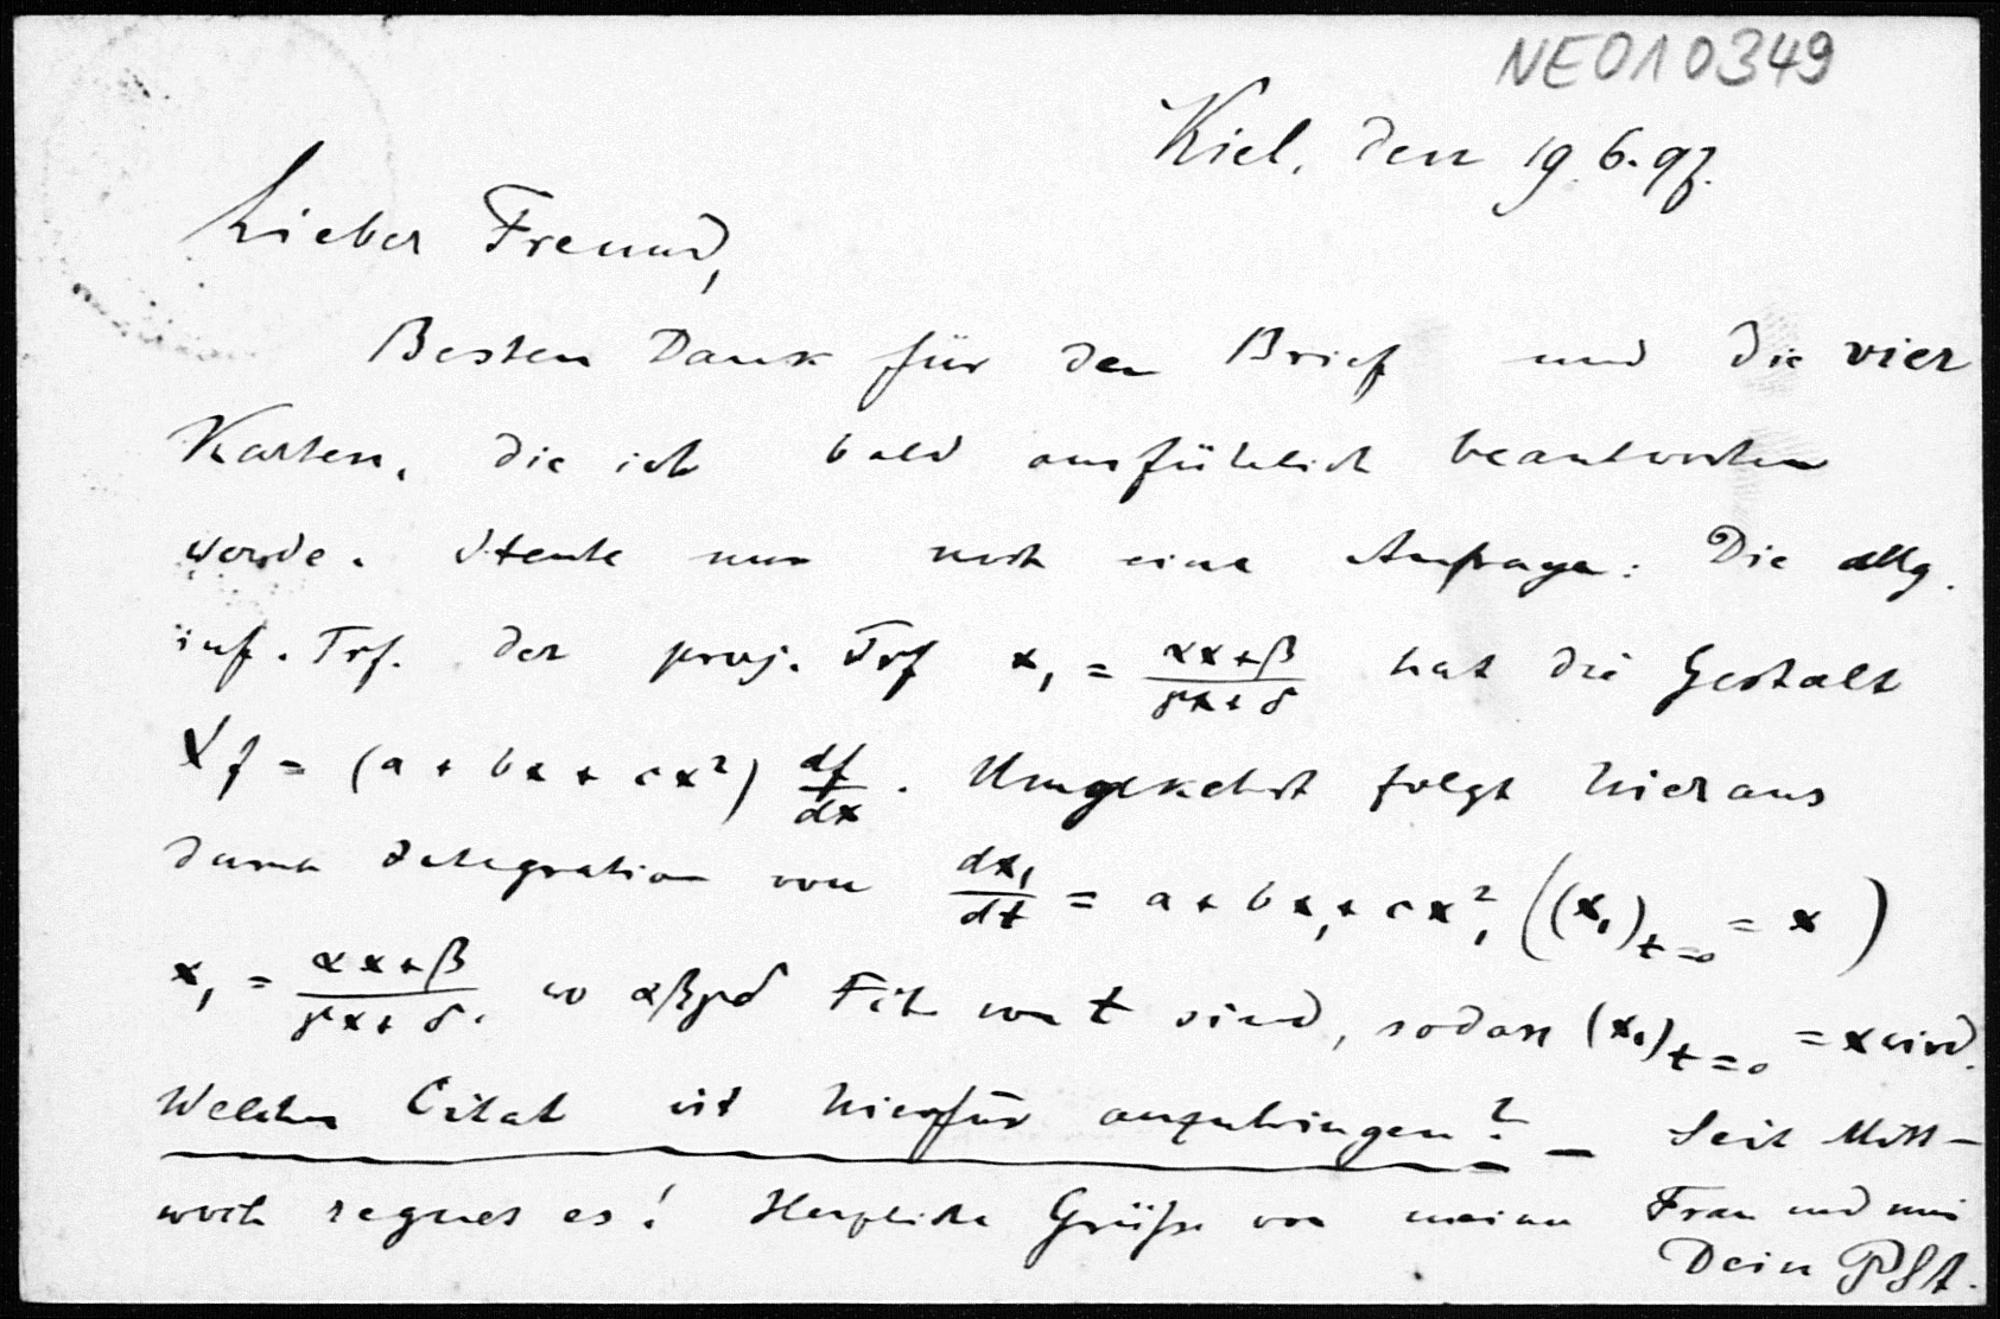 NE010349
Kiel, den 19.6.97.
Lieber Freund,
Besten Dank für den Brief und die vier
Karten, die ich bald ausführlich beantworten
werde. Heute nur noch eine Anfrage: Die allg.
inf. Trf. der proj. Trf x₁ = (αx+β)/(γx+δ) hat die Gestalt
Xf = (a + bx + cx²) df/dx. Umgekehrt folgt hieraus
durch Integration von dx₁/dt = a + bx₁ + cx₁², ((x₁)ₜ₌₀ = x)
x₁ = (αx+β)/(γx+δ), wo αβγδ Fct. von t sind, sodass (x₁)ₜ₌₀ = x wird.
Welches Citat ist hierfür anzubringen? — Seit Mitt-
woch regnet es! Herzliche Grüße von meiner Frau und mir
Dein PSt.